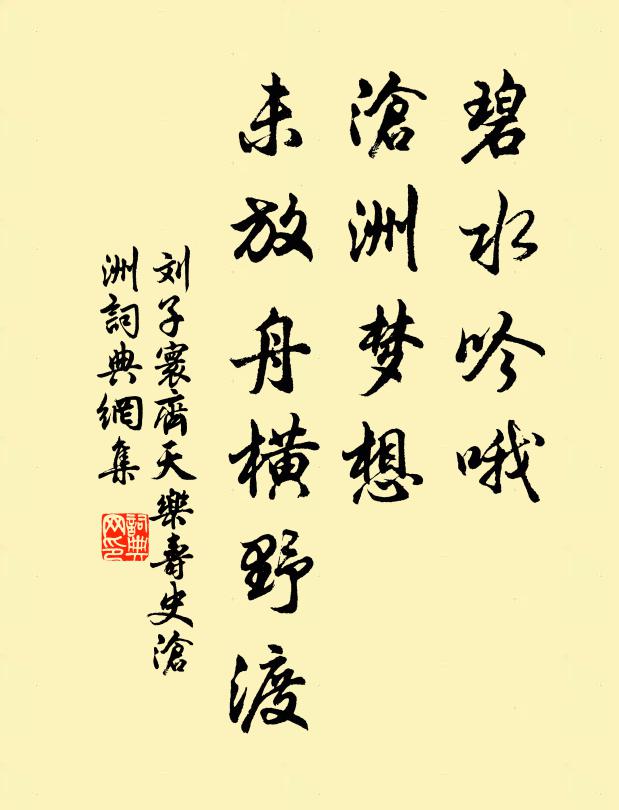 碧水吟哦
滄洲梦想
未放舟横野渡
刘子寰齊天樂壽史滄
洲詞典網集
詞典网印